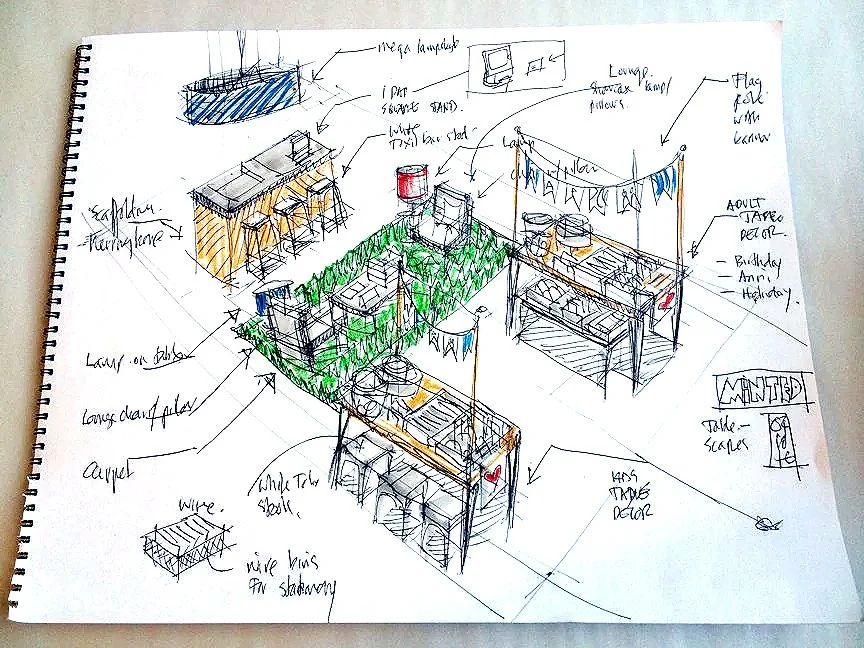 mega lampshade
iPAD
SQUARE STAND.
White
Tolix bar stool
Lounge.
Showcase lamp/
pillows.
Flag
Pole
with
banner
Lamp
chair w/ pillow
scaffolding
Herringbone
ADULT
TABLE
DECOR.
- Birthday
- Anni
- Holiday.
Lamp on table
Lounge chair/pillow
Carpet
MINTED
Table-
scapes
White Tolix
stools,
KIDS
TABLE
DECOR
wire.
wire bins
for stationary